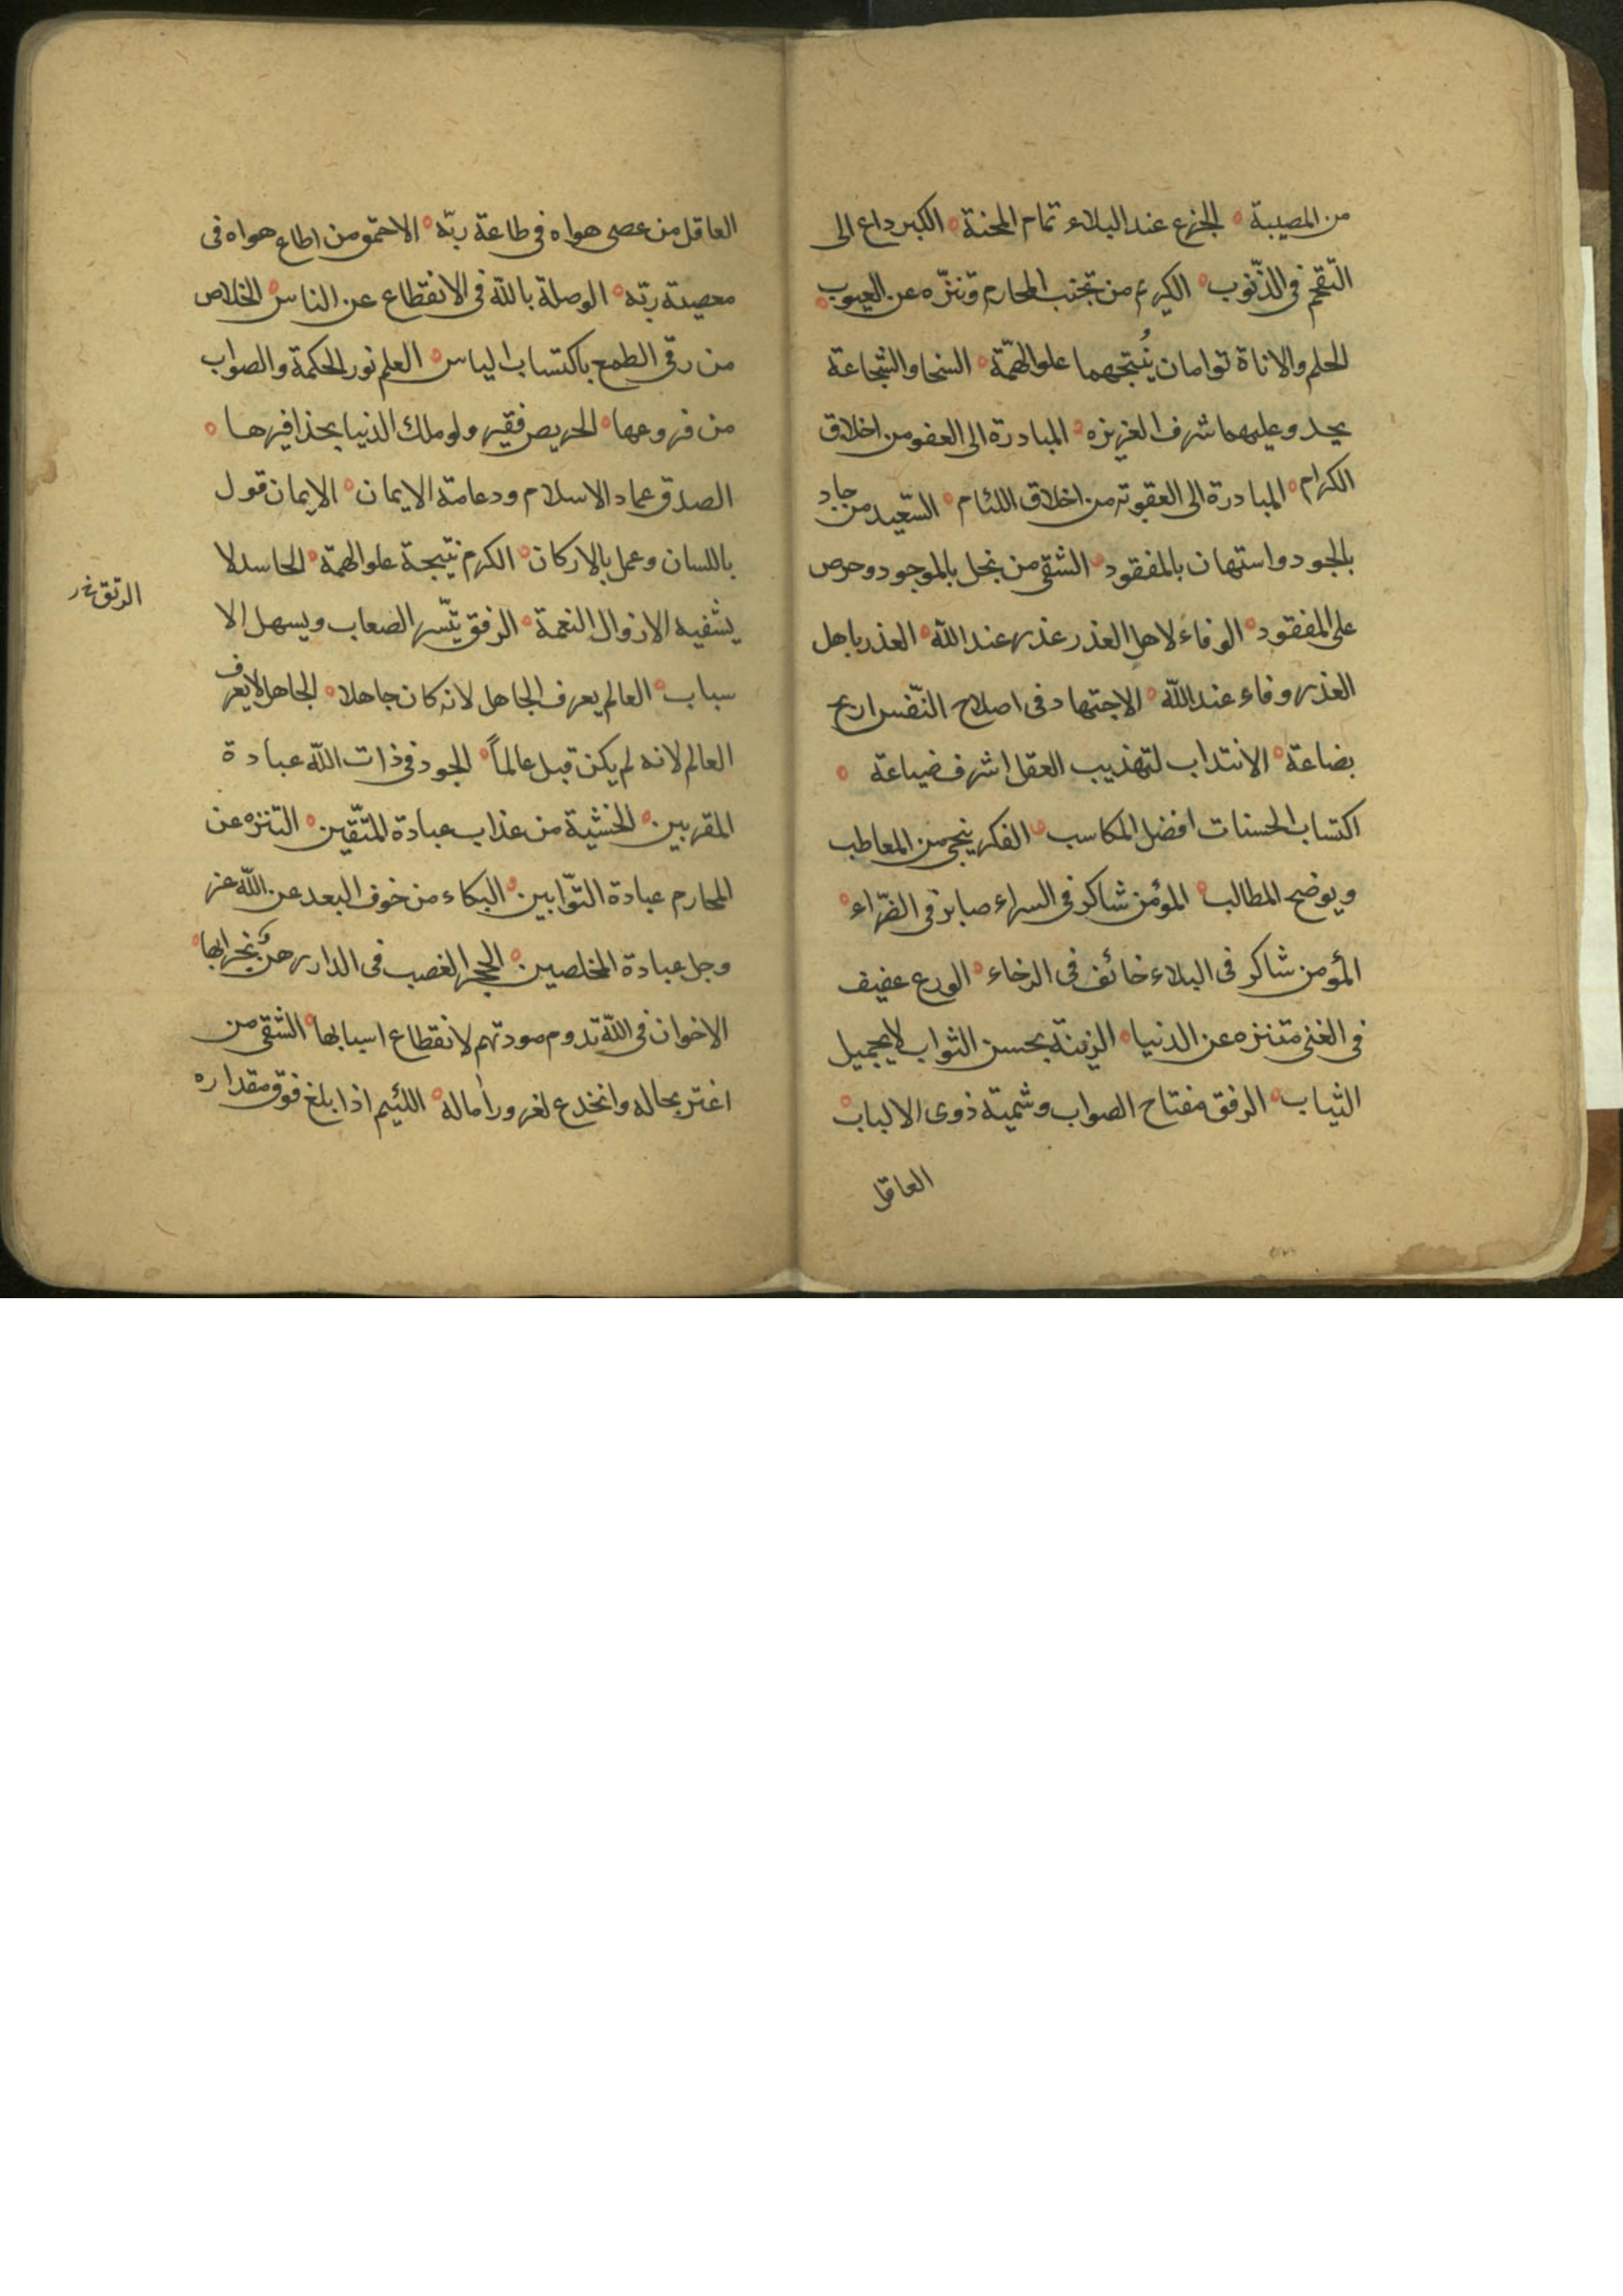 من المصيبة ه الجزع عند البلاء تمام المحنة ه الكبر داع الى
التّقحّم فى الذّنوب ه الكريم من تجنب المحارم وتنزّه عن العيوب ه
الحلم والاناة توامان يُنتجهما علو الهمّة ه السخا والشجاعة
يحد وعليهما شرف الغريزه ه المبادرة الى العفو من اخلاق
الكرام ه المبادرة الى العقوبة من اخلاق اللئام ه السّعيد من جاد
بالجود واستهان بالمفقود ه الشقى من بخل بالموجود وحرص
على المفقود ه الوفاء لاهل الغدر غدر عند الله ه الغدر باهل
الغدر وفاء عند الله ه الاجتهاد فى اصلاح النّفس اربح
بضاعة ه الانتداب لتهذيب العقل اشرف ضياعة ه
اكتساب الحسنات افضل المكاسب ه الفكر ينجى من المعاطب
ويوضح المطالب ه المؤمن شاكر فى السراء صابر فى الضرّاء ه
المؤمن شاكر فى البلاء خائف فى الرخاء ه الورع عفيف
فى الغنى متنزه عن الدنيا ه الزينة بحسن الثواب لا بجميل
الثياب ه الرفق مفتاح الصواب وشمية ذوى الالباب ه
العاقل
العاقل من عصى هواه فى طاعة ربّه ه الاحمق من اطاع هواه فى
معصية ربّه ه الوصلة بالله فى الانقطاع عن الناس ه الخلاص
من رقى الطمع باكتساب الياس ه العلم نور الحكمة والصواب
من فروعها ه الحريص فقير ولو ملك الدنيا بحذافيرها ه
الصدق عماد الاسلام ودعامة الايمان ه الايمان قول
باللسان وعمل بالاركان ه الكرم نتيجة علو الهمة ه الحاسد لا
يشفيه الا زوال النعمة ه الرفق يتّسر الصعاب ويسهل الا
سباب ه العالم يعرف الجاهل لانه كان جاهلا ه الجاهل لا يعرف
العالم لانه لم يكن قبل عالماً ه الجود فى ذات الله عبادة
المقربين ه الخشية من عذاب عبادة المتّقين ه التنزه عن
المحارم عبادة التوّابين ه البكاء من خوف البعد عن الله عز
وجل عبادة المخلصين ه الحجر الغصب فى الدار رهن بخرابها ه
الاخوان فى الله تدوم مودتهم لانقطاع اسبابها ه الشقى من
اغتر بحاله وانخدع لغرور اماله ه اللئيم اذا بلغ فوق مقداره